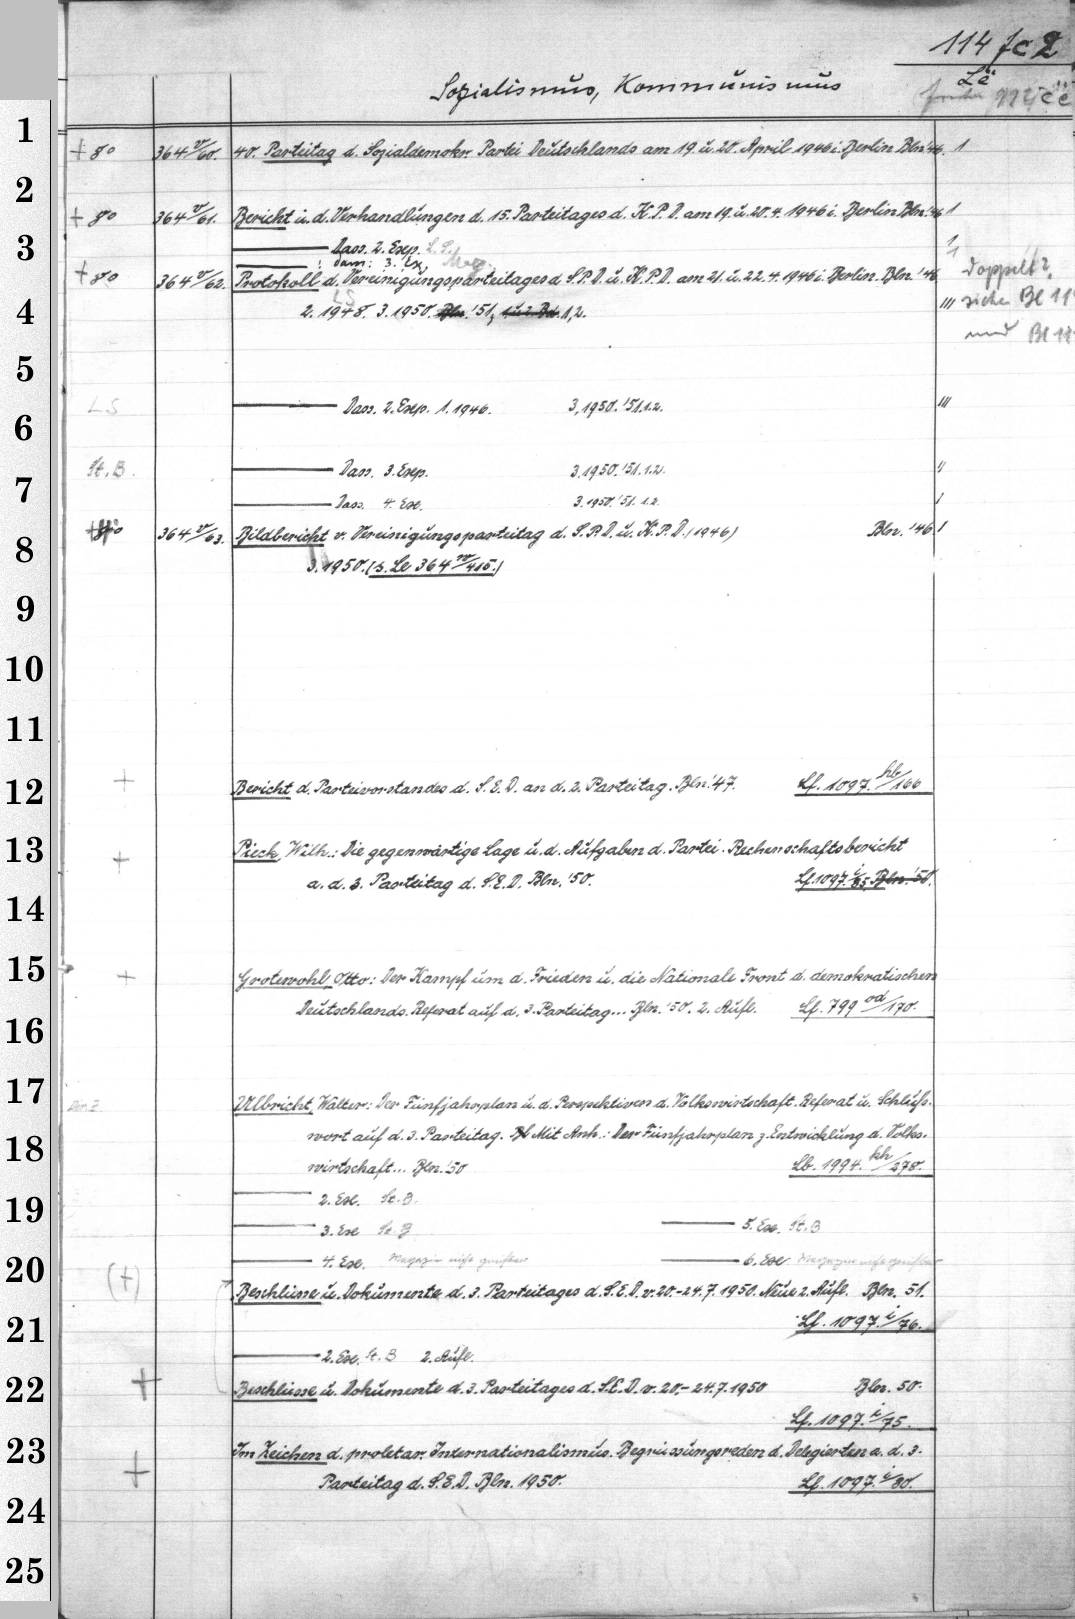 114 fc 2
Lë
Sozialismus, Kommunismus
früher
1
+ 8° 364 v/60. 40. Parteitag d. Sozialdemokr. Partei Deutschlands am 19. u. 20. April 1946 i. Berlin Bln. '46. 1
2
+ 8° 364 v/61. Bericht ü. d. Verhandlungen d. 15. Parteitages d. K.P.D. am 19. u. 20.4.1946 i. Berlin Bln. '46 1
3
Dass. 2. Exp. L.S. 1
dam: 3. Ex. Mag. 1
+ 8° 364 v/62. Protokoll d. Vereinigungsparteitages d. S.P.D. u. K.P.D. am 21. u. 22.4.1946 i. Berlin. Bln. '46. doppelt?
LS
4
2. 1948. 3. 1950. Bln. '51, 1,2. III siehe Bl 11
und Bl 11
5
LS Dass. 2. Exp. 1. 1946. 3, 1950. '51. 1.2. III
6
St. B. Dass. 3. Exp. 3. 1950. '51. 1.2. II
7
Dass. 4. Exe. 3. 1950. '51. 1.2. I
+ 8° 364 v/63. Bildbericht v. Vereinigungsparteitag d. S.P.D. u. K.P.D. (1946) Bln. '46 1
8
3. 1950. (s. Le 364 vv/415.)
9
10
11
12
+ Bericht d. Parteivorstandes d. S.E.D. an d. 2. Parteitag. Bln. '47. Lf. 1097. hb/166
13
+ Pieck, Wilh.: Die gegenwärtige Lage u. d. Aufgaben d. Partei. Rechenschaftsbericht
a. d. 3. Parteitag d. S.E.D. Bln. '50. Lf. 1097. i/85. Bln. '50.
14
15
+ Grotewohl, Otto: Der Kampf um d. Frieden u. die Nationale Front d. demokratischen
Deutschlands. Referat auf d. 3. Parteitag... Bln. '50. 2. Aufl. Lf. 799 od/170.
16
17
Ulbricht, Walter: Der Fünfjahrplan u. d. Perspektiven d. Volkswirtschaft. Referat u. Schluß-
wort auf d. 3. Parteitag. Mit Anh.: Der Fünfjahrplan z. Entwicklung d. Volks-
18
wirtschaft... Bln. '50 Lb. 1994. kh/278.
2. Exe. St. B.
19
3. Exe St. B 5. Exe. St. B
4. Exe. Magazin 6. Exe Magazin
20
(+) Beschlüsse u. Dokumente d. 3. Parteitages d. S.E.D. v. 20.-24.7.1950. Neue 2. Aufl. Bln. 51.
21
Lf. 1097. i/76.
2. Exe. St. B 2. Aufl.
22
+ Beschlüsse u. Dokumente d. 3. Parteitages d. S.E.D. v. 20.-24.7.1950 Bln. 50.
Lf. 1097. i/75.
23
+ Im Zeichen d. proletar. Internationalismus. Begrüssungsreden d. Delegierten a. d. 3.
Parteitag d. S.E.D. Bln. 1950. Lf. 1097. i/80.
24
25